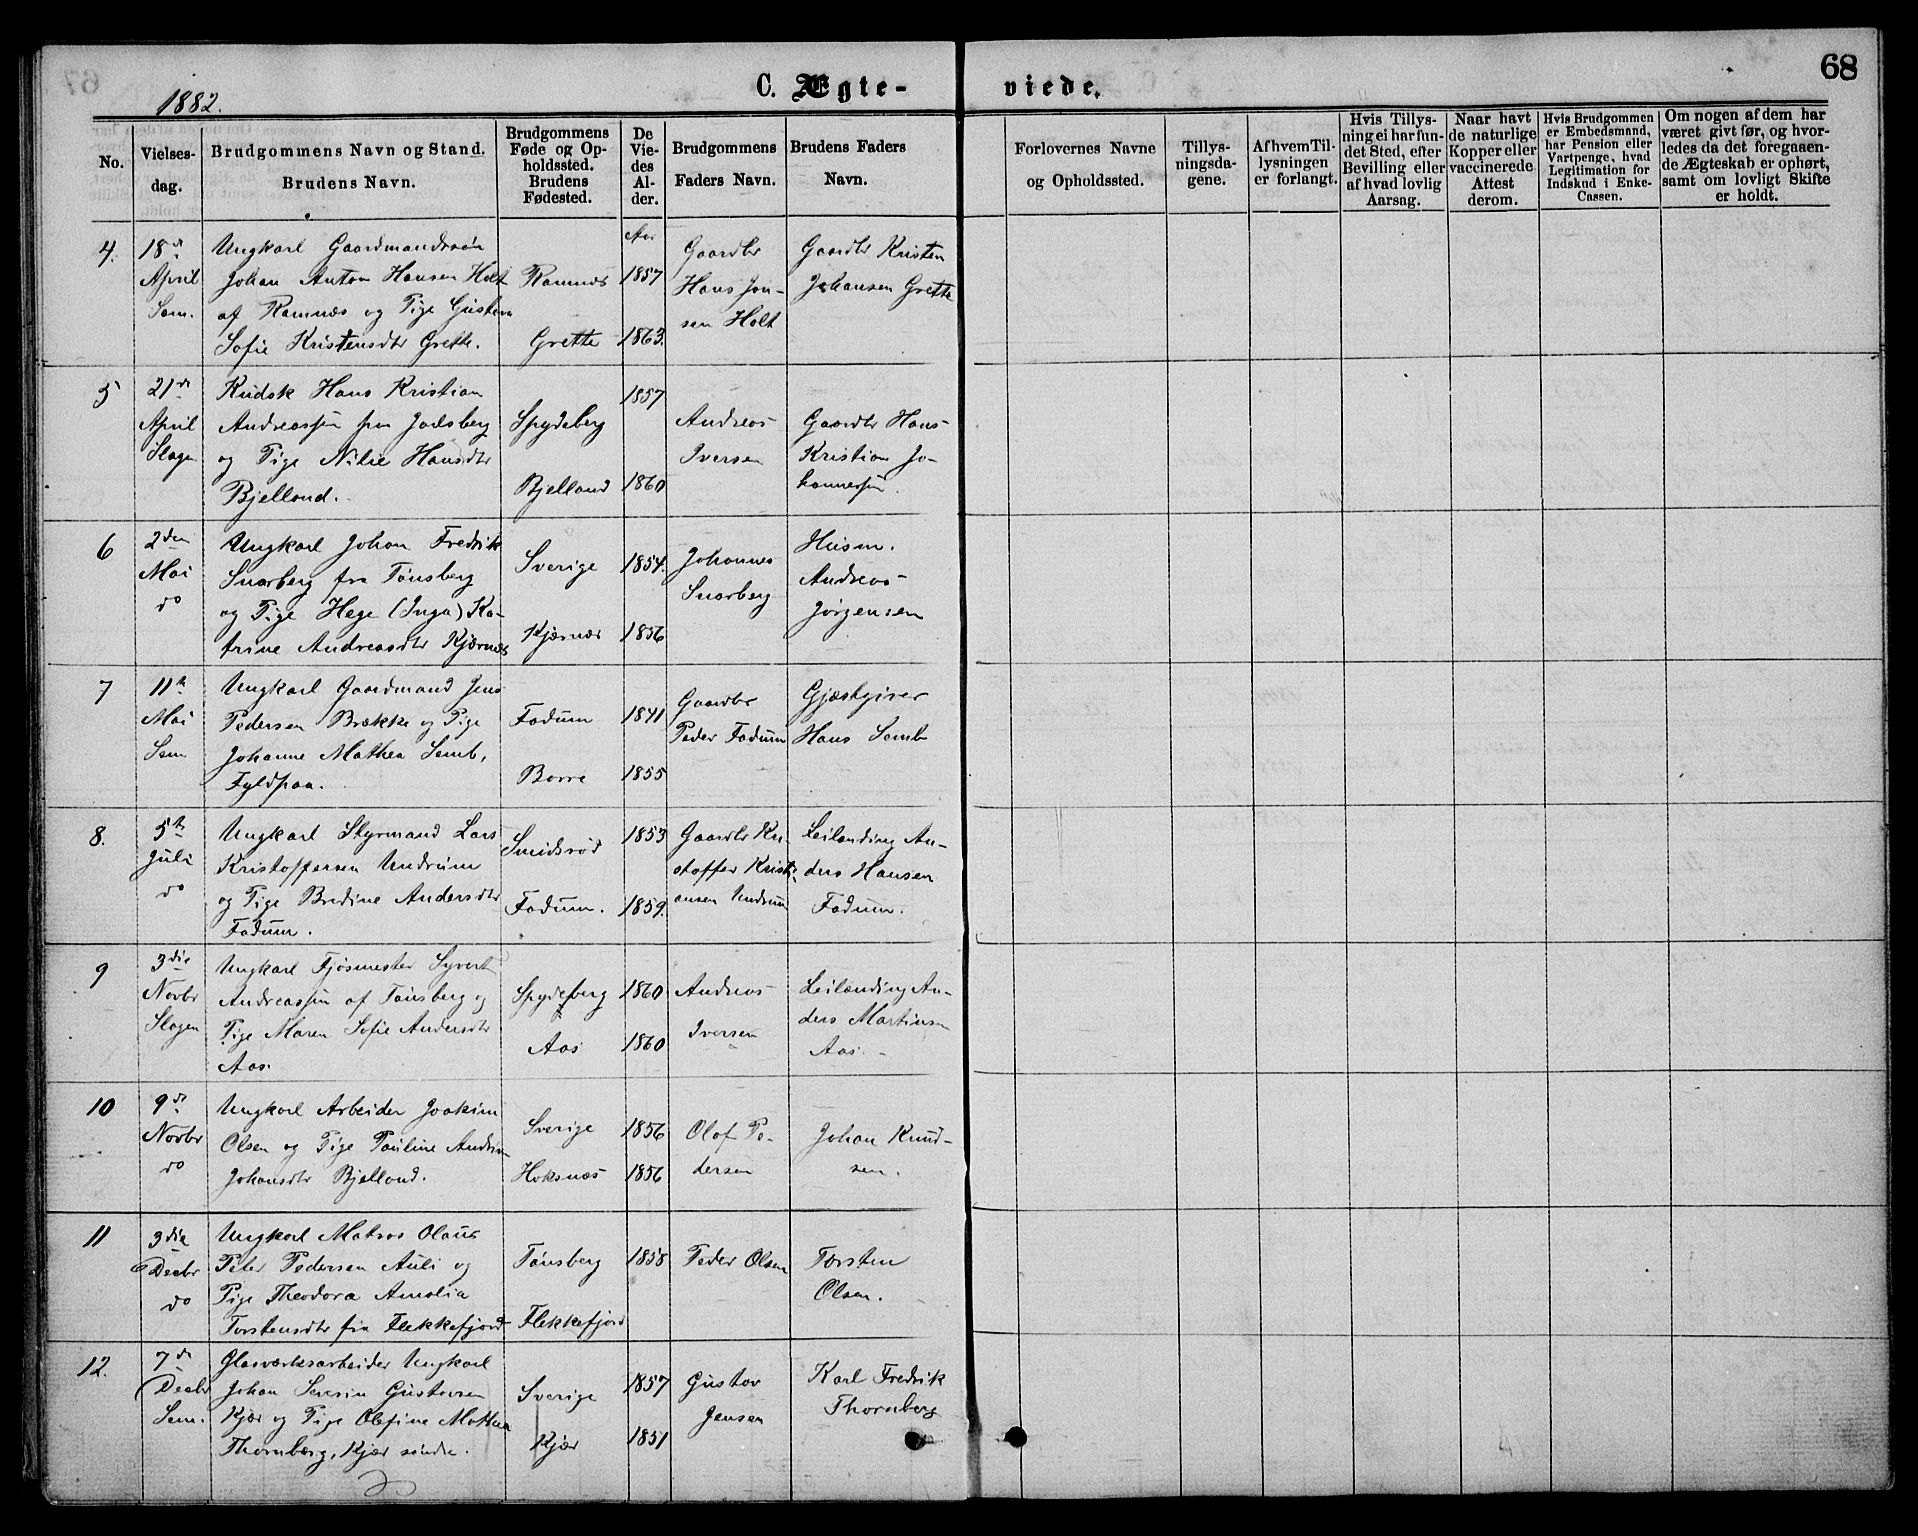 68
1882.
C. Ægte-viede.
No.
Vielses-
dag.
Brudgommens Navn og Stand.
Brudens Navn.
Brudgommens
Føde og Op-
holdssted.
Brudens
Fødested.
De
Vie-
des
Al-
der.
Brudgommens
Faders Navn.
Brudens Faders
Navn.
Forlovernes Navne
og Opholdssted.
Tillys-
ningsda-
gene.
Af hvem Til-
lysningen
er forlangt.
Hvis Tillys-
ning ei har fun-
det Sted, efter
Bevilling eller
af hvad lovlig
Aarsag.
Naar havt
de naturlige
Kopper eller
vaccinerede
Attest
derom.
Hvis Brudgommen
er Embedsmand,
har Pension eller
Vartpenge, hvad
Legitimation for
Indskud i Enke-
Cassen.
Om nogen af dem har
været givt før, og hvor-
ledes da det foregaaen-
de Ægteskab er ophørt,
samt om lovligt Skifte
er holdt.
4.
18de
April
Sem.
Ungkarl Gaardmandssøn
Johan Anton Hansen Holt
af Ramnæs og Pige Gustava
Sofie Kristensdtr Grette.
Ramnæs
Grette
Aar
1857
1863.
Gaardbr
Hans Jon-
sen Holt
Gaardbr Kristen
Johansen Grette
5
21de
April
Slagen
Kudsk Hans Kristian
Andreassøn fra Jarlsberg
og Pige Nilie Hansdtr
Bjelland.
Spydeberg
Bjelland
1857
1860
Andreas
Iversen
Gaardbr Hans
Kristian Jo-
hannessøn.
6
2den
Mai
do
Ungkarl Johan Fredrik
Snarberg fra Tønsberg
og Pige Hege (Inga) Ka-
trine Andreasdtr Kjærnæs
Sverige
Kjærnæs
1854.
1856
Johannes
Snarberg
Husm.
Andreas
Jørgensen
7
11te
Mai
Sem
Ungkarl Gaardmand Jens
Pedersen Brække og Pige
Johanne Mathea Semb,
Fyldpaa.
Fadum
Borre
1841
1855
Gaardbr
Peder Fadum
Gjæstgiver
Hans Semb
8.
5te
Juli
do
Ungkarl Styrmand Lars
Kristoffersen Undrum
og Pige Bredine Andersdtr
Fadum.
Smidsrød
Fadum.
1853
1859.
Gaardbr Kri-
stoffer Kristi-
ansen Undrum
Leilænding An-
ders Hansen
Fadum.
9
3die
Novbr
Slagen
Ungkarl Fjøsmester Syvert
Andreassøn af Tønsberg og
Pige Maren Sofie Andersdtr
Aas.
Spydeberg
Aas
1860
1860
Andreas
Iversen
Leilænding An-
ders Martinsen
Aas.
10
9de
Novbr
do
Ungkarl Arbeider Joakim
Olsen og Pige Pauline Andrea
Johansdtr Bjelland.
Sverige
Hoksnæs
1856
1856
Olof Pe-
dersen
Johan Knud-
sen.
11
3die
Decbr
do
Ungkarl Matros Olaus
Peter Pedersen Auli og
Pige Theodora Amalia
Torstensdtr fra Flekkefjord
Tønsberg
Flekkefjord
1858
Peder Olsen
Torsten
Olsen.
12.
7de
Decbr
Sem.
Glasværksarbeider Ungkarl
Johan Severin Gustavsen
Kjær og Pige Olefine Mathea
Thornberg, Kjær søndre.
Sverige
Kjær
1857
1851
Gustav
Jensen
Karl Fredrik
Thornberg